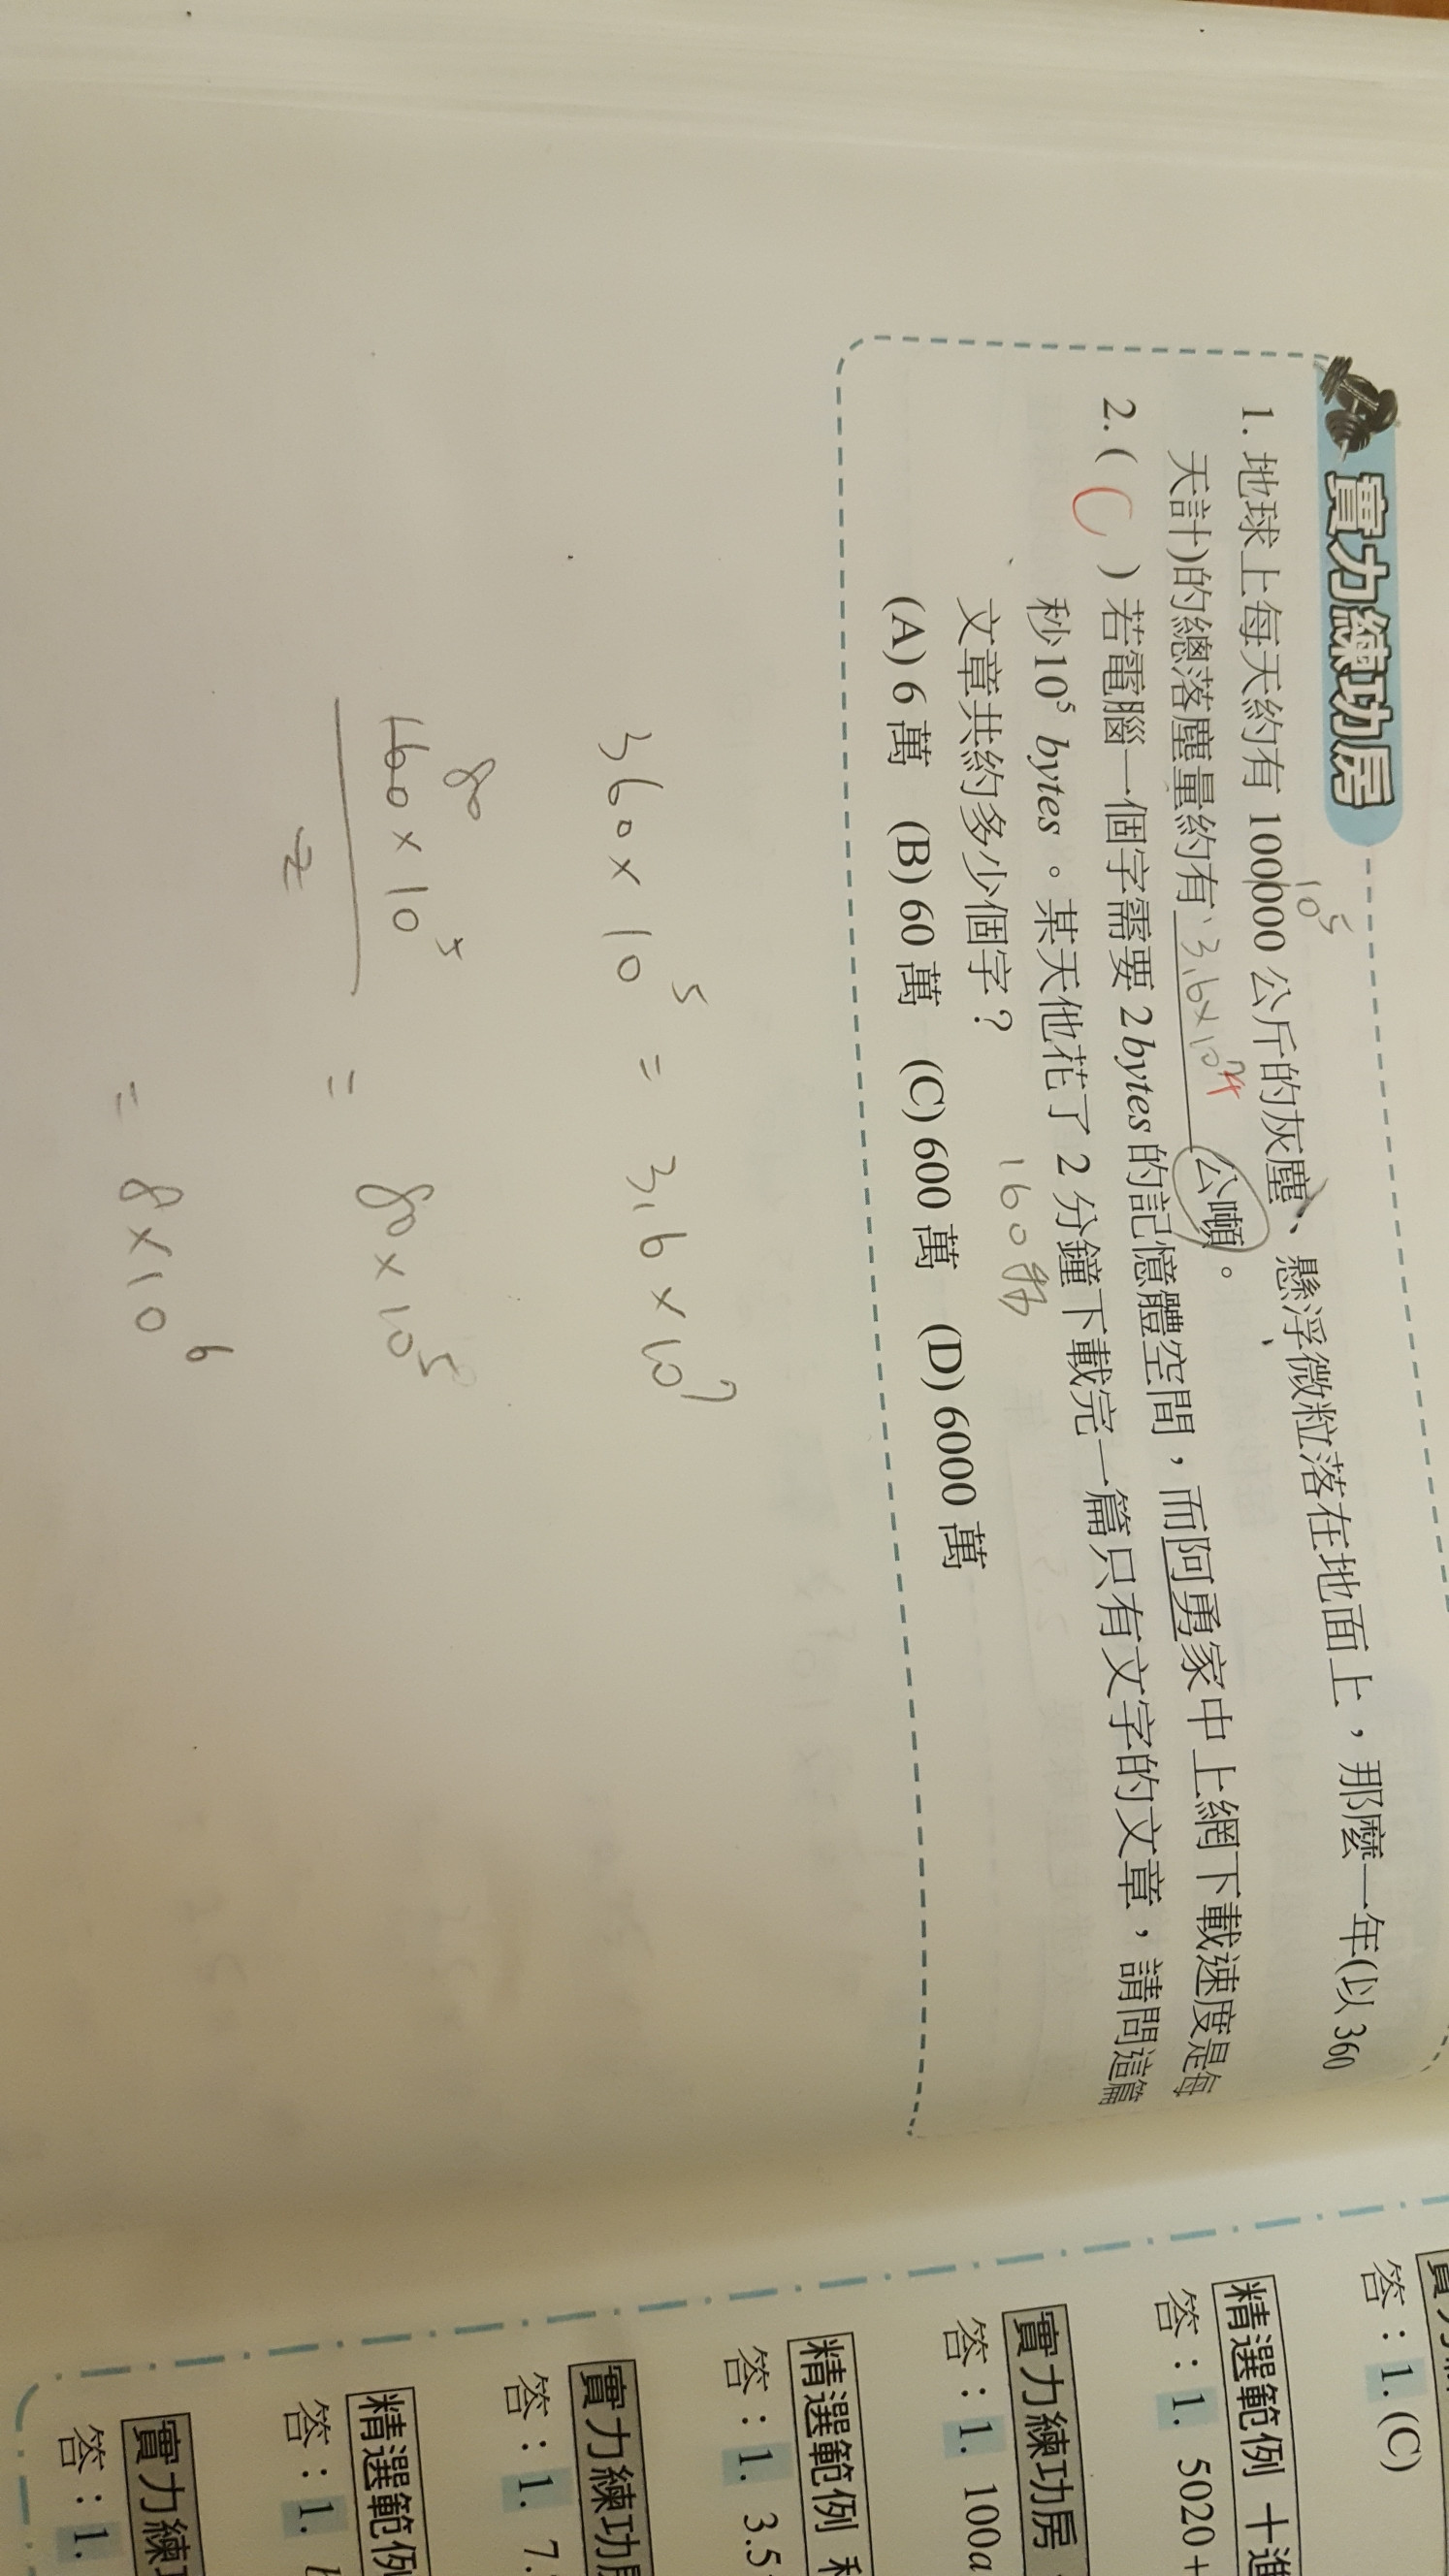 實力練功房
10⁵
1. 地球上每天約有 100000 公斤的灰塵、懸浮微粒落在地面上,那麼一年(以 360
天計)的總落塵量約有 3.6×10⁴ 公噸。
2. ( C ) 若電腦一個字需要 2 bytes 的記憶體空間,而阿勇家中上網下載速度是每
秒10⁵ bytes。某天他花了 2 分鐘下載完一篇只有文字的文章,請問這篇
160秒
文章共約多少個字?
(A) 6 萬 (B) 60 萬 (C) 600 萬 (D) 6000 萬
360×10⁵ = 3.6×10⁷
80
160×10⁵
2
= 80×10⁵
= 8×10⁶
答:1. (C)
精選範例 十進
答:1. 5020+
實力練功房
答:1. 100a
精選範例 科
答:1. 3.5
實力練功房
答:1. 7.
精選範例
答:1.
實力練
答:1.